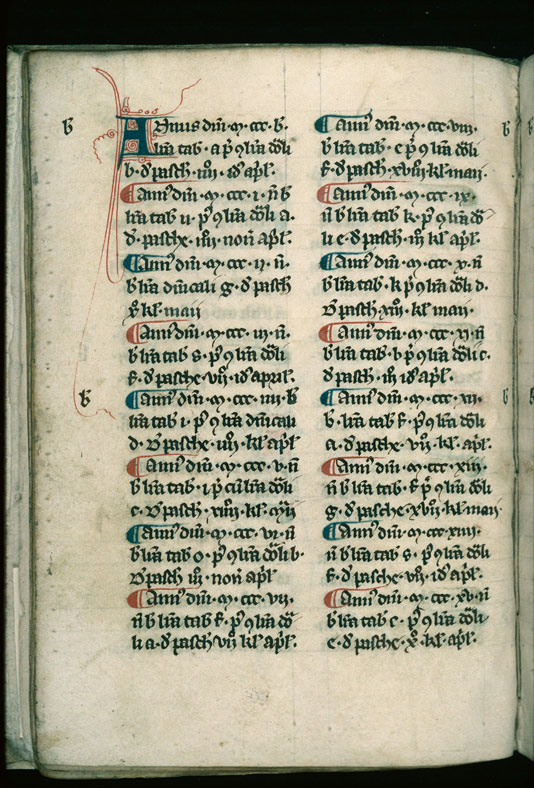 b
Annus dni · m · ccc · b ·
lra tab · a p9 lra dnli
b · d pasch · iiii · id apl ·
Ann9 dni · m · ccc · i · n b
lra tab u · p9 lra dnli a ·
d · pasche · iiii non apl ·
Ann9 dni · m · ccc · ii · n ·
b lra dnicali g · d pasch
x kl maii
Ann9 dni · m · ccc · iii · n ·
b lra tab s · p9 lra dnli
f · d pasche · vii · id april ·
b
Ann9 dni · m · ccc · iiii · b
lra tab i · p9 lra dnicali
d · d pasche · iiii · kl apl
Ann9 dni · m · ccc · v · n
b lra tab · i p cu lra dnli
c · d pasch · xiiii · kl maii
Ann9 dni · m · ccc · vi · n
b lra tab q · p9 lra dnli b ·
d pasch iii · non apl
Ann9 dni · m · ccc · vii ·
n b lra tab f · p9 lra dn
li a · d pasch vii kl apl ·
Ann9 dni · m · ccc · viii ·
b lra tab · e p9 lra dnli
f · d pasch · xviii · kl maii ·
Ann9 dni · m · ccc · ix ·
n b lra tab k · p9 lra dn
li e · d pasch · iii kl apl ·
Ann9 dni · m · ccc · x · n
b lra tab · k p9 lra dnli d ·
d pasch · xiii · kl maii ·
Ann9 dni · m · ccc · xi · n
b lra tab · b p9 lra dnli c ·
d pasch · iii id apl ·
Ann9 dni · m · ccc · xii ·
b · lra tab f · p9 lra dnli
a · d pasche · vii · kl apl ·
Ann9 dni · m · ccc · xiii ·
n b lra tab · f p9 lra dnli
g · d pasche · xvii · kl maii ·
Ann9 dni · m · ccc · xiiii ·
n b lra tab s · p9 lra dnli
f · d pasche · vii · id apl ·
Ann9 dni · m · ccc · xv · n
b lra tab c · p9 lra dnli
e · d pasche · x · kl apl ·
b
b